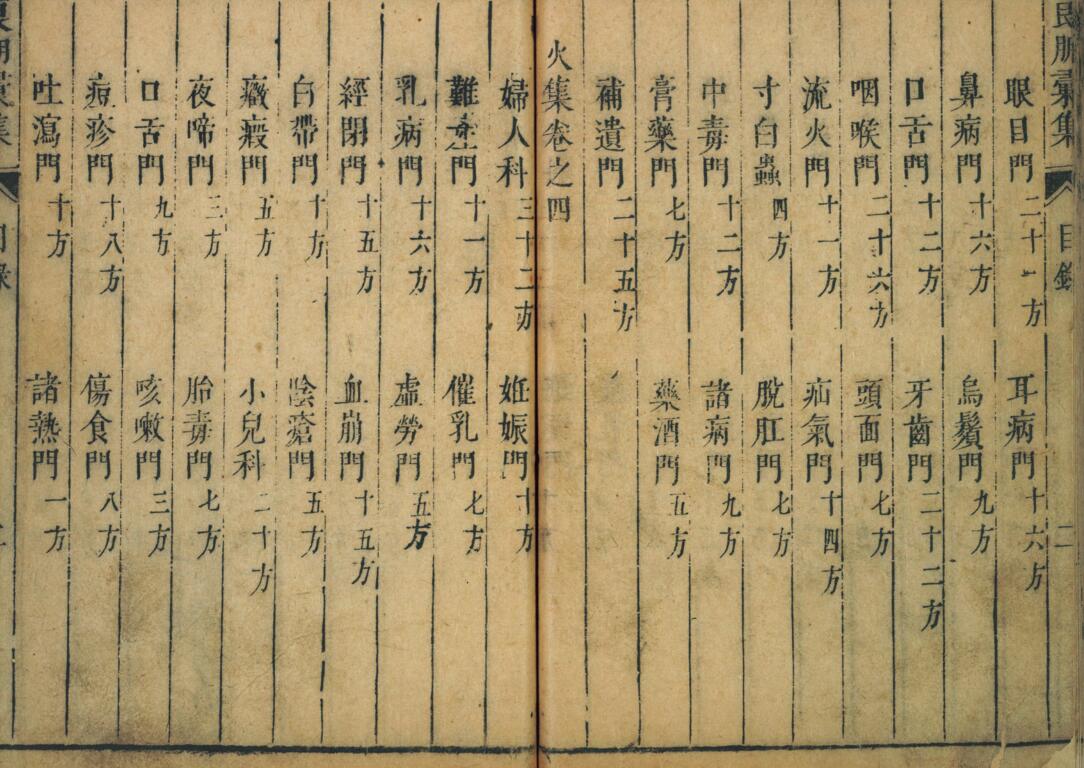 目錄 二
眼目門二十一方 耳病門十六方
鼻病門十六方 烏鬚門九方
口舌門十二方 牙齒門二十二方
咽喉門二十六方 頭面門七方
流火門十一方 疝氣門十四方
寸白蟲四方 脫肛門七方
中毒門十二方 諸病門九方
膏藥門七方 藥酒門五方
補遺門二十五方
火集卷之四
婦人科三十二方 妊娠門十方
難產門十一方 催乳門七方
乳病門十六方 虛勞門五方
經閉門十五方 血崩門十五方
白帶門十方 陰瘡門五方
癥瘕門五方 小兒科二十方
夜啼門三方 胎毒門七方
口舌門九方 咳嗽門三方
痘疹門十八方 傷食門八方
吐瀉門十方 諸熱門一方